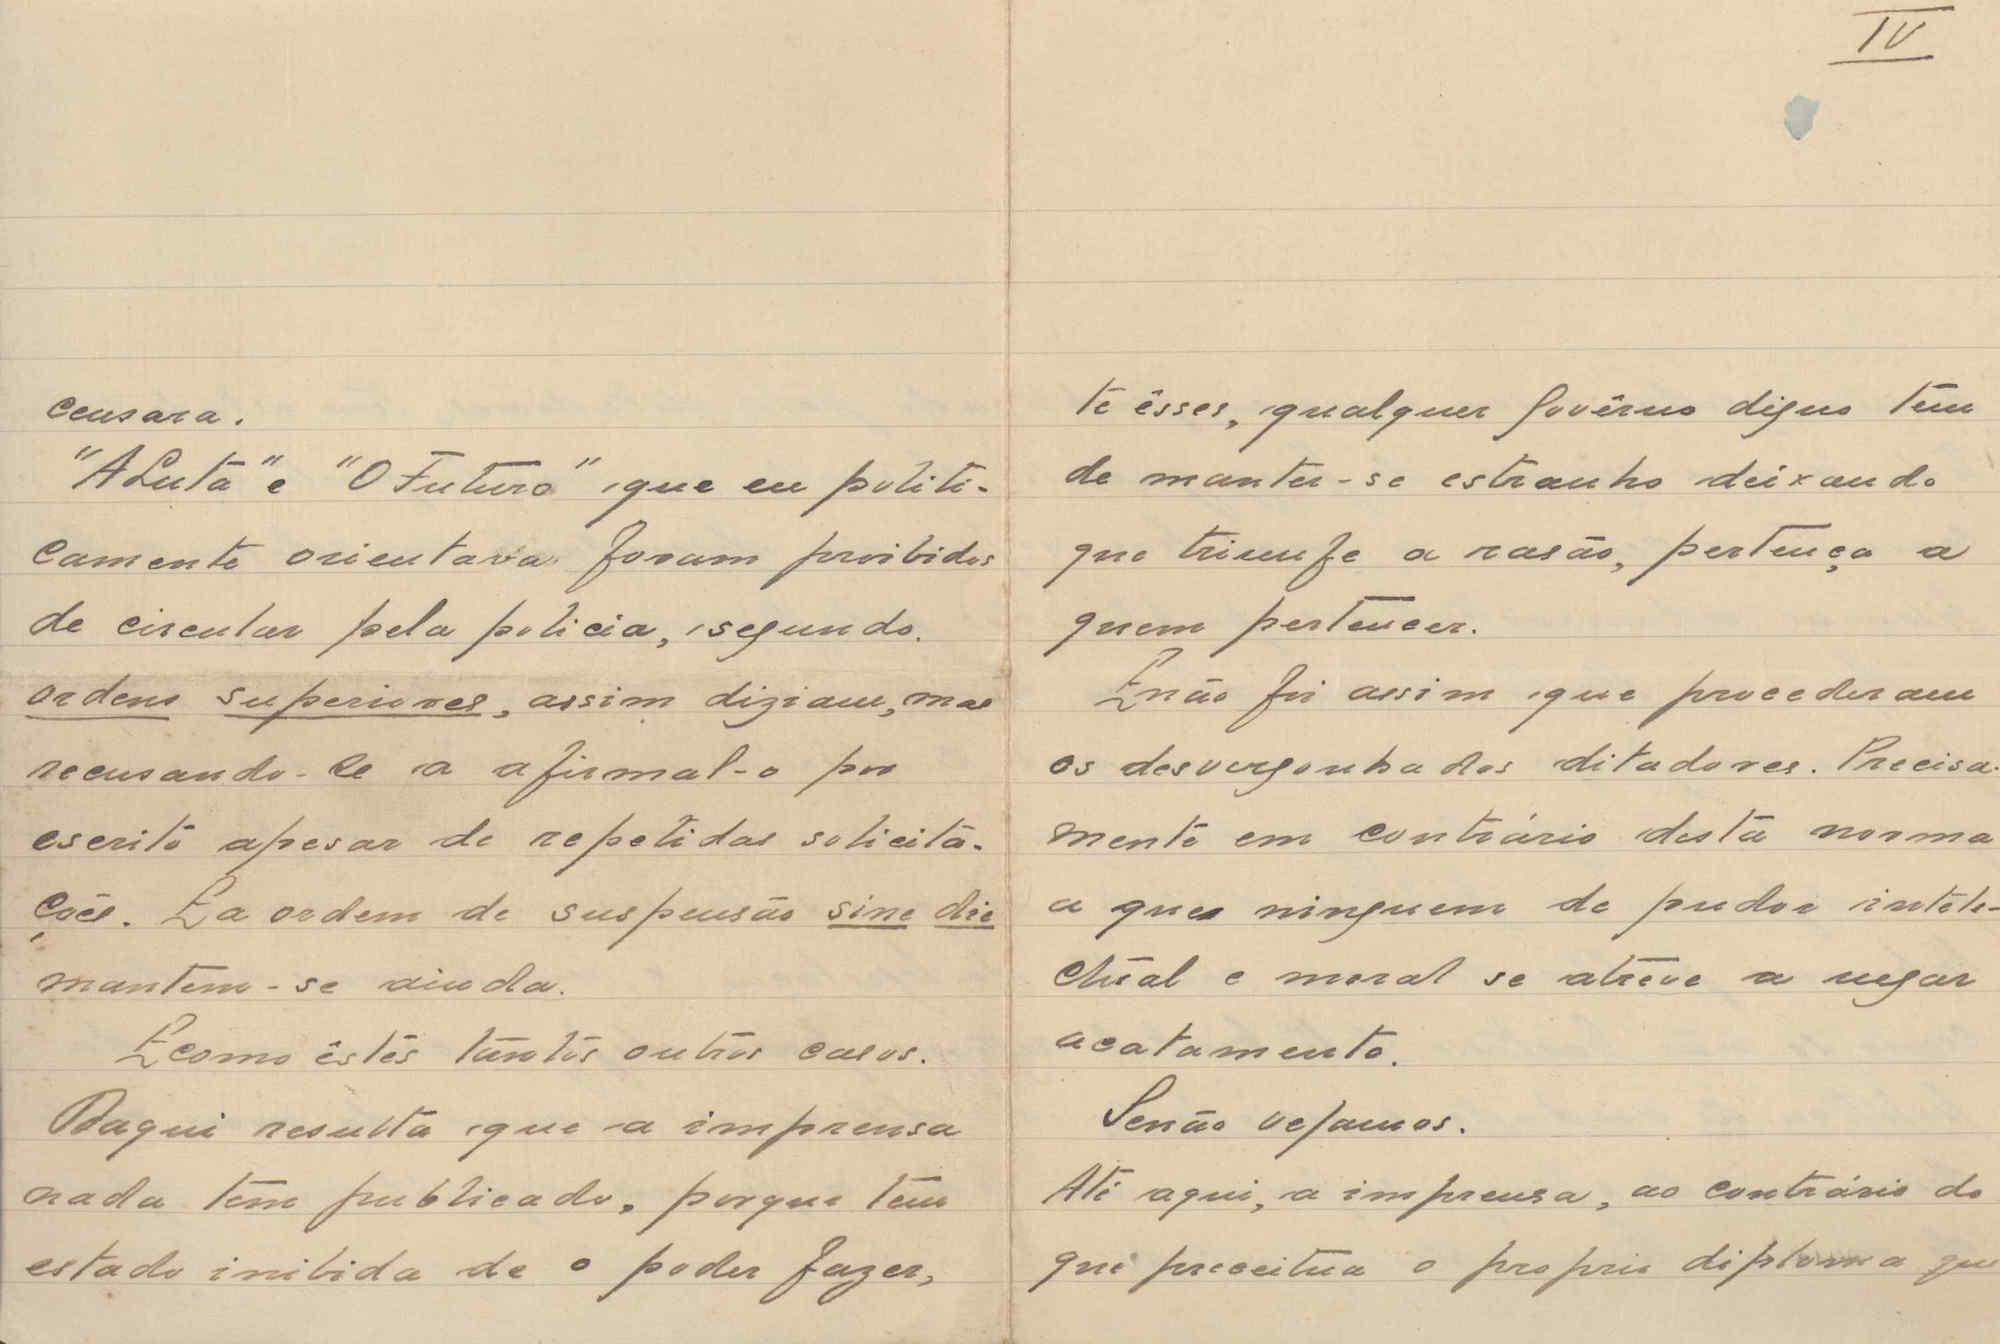 censara.
"A Luta" e "O Futuro" que eu politi-
camente orientava foram proibidos
de circular pela policia, segundo
ordens superiores, assim diziam, mas
recusando-se a afirmal-o por
escrito apesar de repetidas solicita-
ções. E a ordem de suspensão sine die
mantem-se ainda.
E como êstes tantos outros casos.
Daqui resulta que a imprensa
nada tem publicado, porque tem
estado inibida de o poder fazer,
IV
te êsses, qualquer Govêrno digno tem
de manter-se estranho deixando
que triunfe a rasão, pertença a
quem pertencer.
E não foi assim que procederam
os desvergonhados ditadores. Precisa-
mente em contrário desta norma
a que ninguem de pudor intele-
ctual e moral se atreve a negar
acatamento.
Senão vejamos.
Até aqui, a imprensa, ao contrário do
que preceitua o proprio diploma que